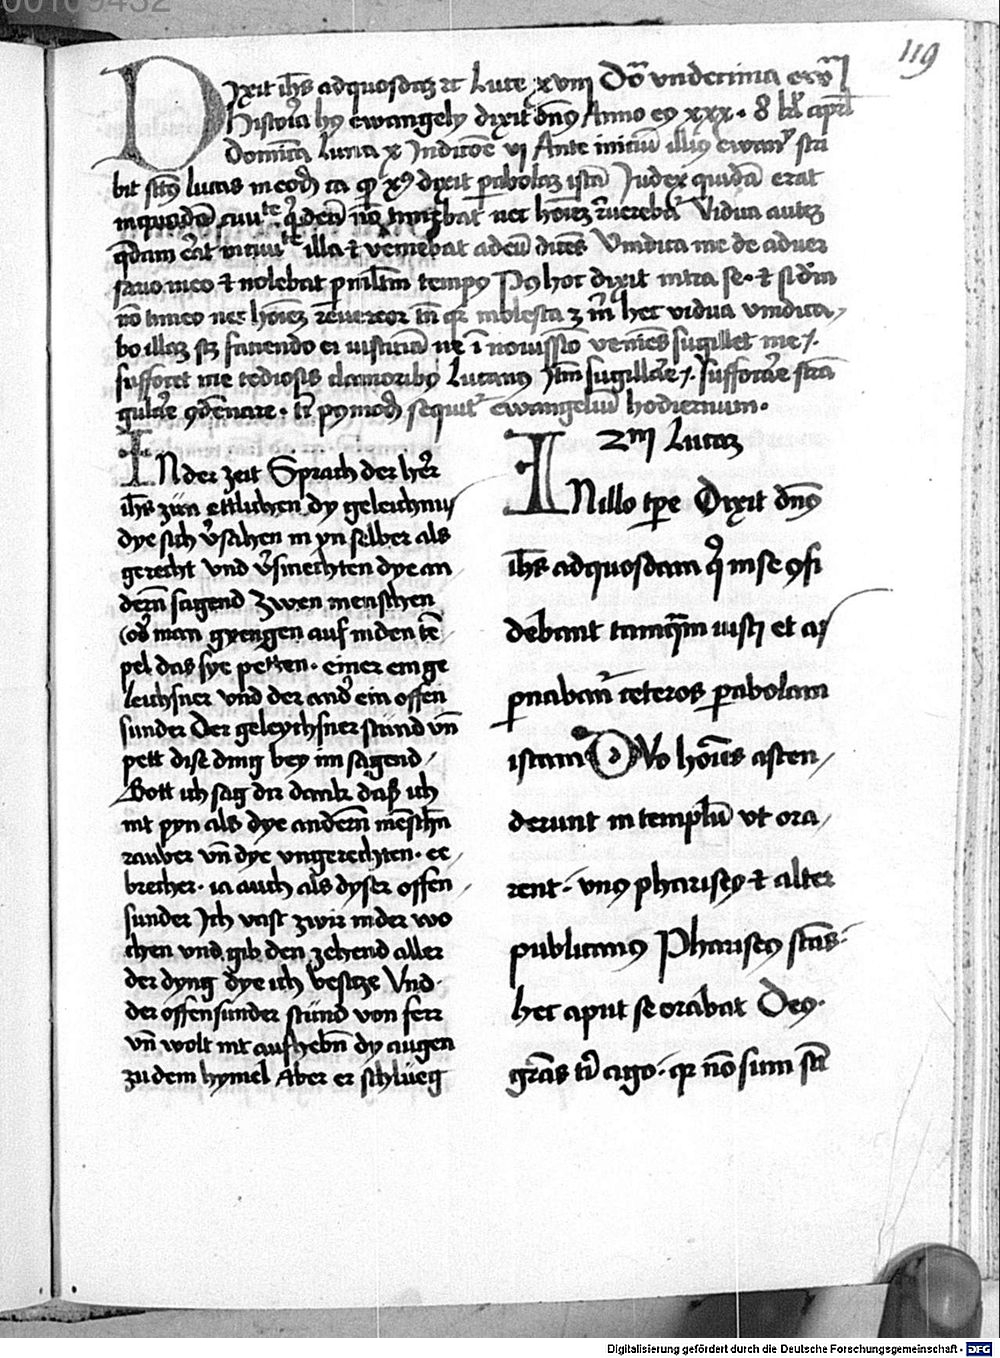 119
Dixit ih̄s adquosdaȝ ⁊c̄ Luce xviij Dō vndecima
Historia hꝰ ewangelÿ dixit dn̄s Anno eꝰ xxx. 8 kl̄ april
Domī̄ca Luna x Indictōe vj Ante iniciū illiꝰ ewanḡ scri
bit sct̄s lucas in eod̄ ca qꝫ xp̄s dixit ꝑabolaȝ istā Judex quidā erat
in quadā ciuite q̄ deū nō timebat nec hoīeȝ rēuerebat̄ Vidua auteȝ
q̄dam erat in ciuite illa ⁊ veniebat ad eū dicēs Vindica me de aduer
sario meo ⁊ nolebat ꝑ mltm̄ tempꝰ Pꝰ hoc dixit intra se. ⁊ si dm̄
nō timeo nec hoīeȝ reuereor tn̄ qꝛ molesta ē m̄ hec vidua vindica
bo illaȝ sȝ faciendo ei iusticiā ne ī nouissīo veniēs sugillet me .i.
suffocet me tediosis clamoribꝰ Lucanꝰ Itm̄ sugillare .i. suffocare stran
gulare ꝯdēnare. tn̄ pꝰmod̄ sequit̄ ewangeliū hodiernum.
IN der zeit Sprach der her̄
ih̄s zün ettlichen dy geleichnus
dye sich v̄sahen in yn selber als
gerecht vnd v̄smechten dye an
dern̄ sagend Zwen menschen
(od̄ man gyengen auf in den tē
pel das sye petten. einer ein ge
leichsner vnd der and̄ ein offen
sunder Der geleychsner stund vn̄
pett dise ding bey im sagend
Gott ich sag dir dank daß ich
nit pyn als dye andern̄ mēschn̄
rauber vn̄ dye vngerechten. ee
brecher. ia auch als dyser offen
sunder Ich vast zwir in der wo
chen vnd gib den zehend aller
der dyng dye ich besitze Vnd
der offensunder stund von ferr
vn̄ wolt nit aufhebn̄ dy augen
zu dem hymel Aber er schlueg
2m̄ Lucaȝ
IN illo tp̄e Dixit dn̄s
ih̄s adquosdam q̄ in se ꝯfi
debant tamq̄m iusti et as
ꝑnabant̄ ceteros ꝑabolam
istam DVo hoīes ascen
derunt in templū vt ora
rent. vnꝰ phariseꝰ ⁊ alter
publicanꝰ Phariseꝰ stās
hec aput se orabat Deꝰ
grās ti ago. qꝛ nō sum sic̄
Digitalisierung gefördert durch die Deutsche Forschungsgemeinschaft - DFG